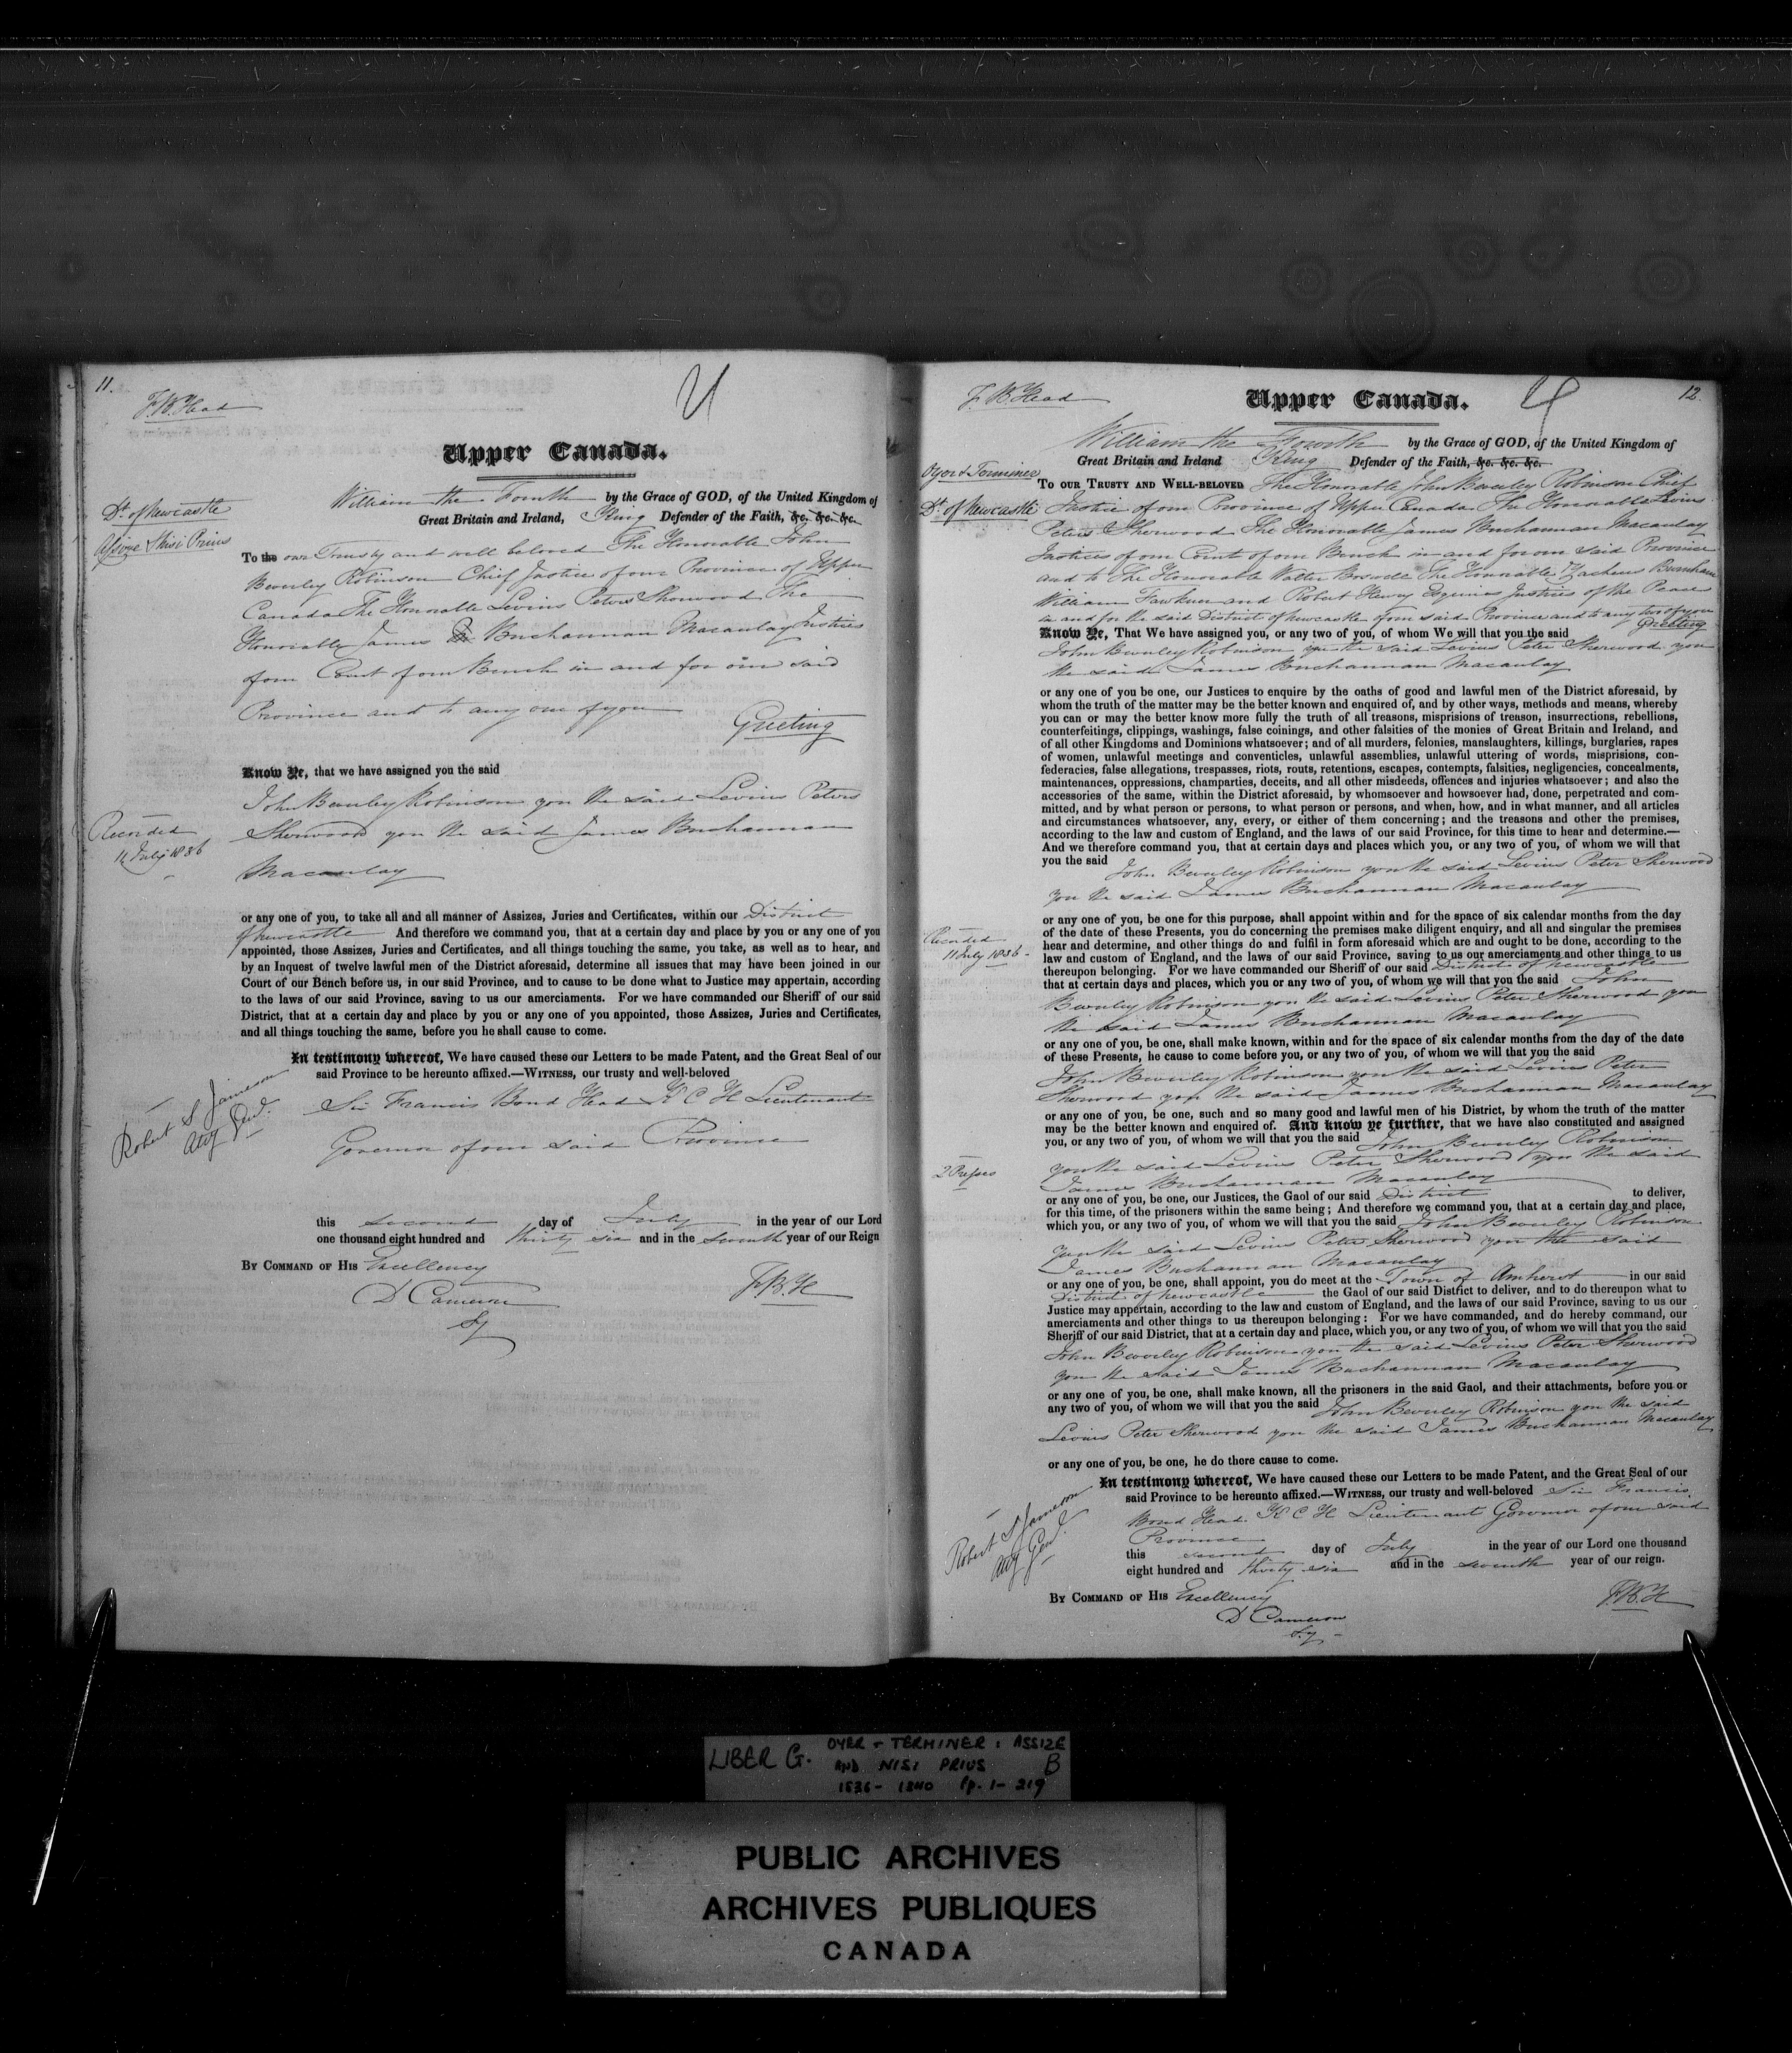 11.
F. B. Head
Upper Canada.
Dt. of Newcastle
Assize & Nisi Prius
William the Fourth by the Grace of GOD, of the United Kingdom of
Great Britain and Ireland, King Defender of the Faith, &c. &c. &c.
To the our Trusty and well beloved The Honorable John
Beverley Robinson Chief Justice of our Province of Upper
Canada The Honorable Levius Peters Sherwood The
Honorable James Buchannan Macaulay Justices
of our Court of our Bench in and for our said
Province and to any one of you
Greeting
Know Ye, that we have assigned you the said
John Beverley Robinson you the said Levius Peters
Sherwood you the said James Buchannan
Macaulay
Recorded
11 July 1836
or any one of you, to take all and all manner of Assizes, Juries and Certificates, within our District
of Newcastle And therefore we command you, that at a certain day and place by you or any one of you
appointed, those Assizes, Juries and Certificates, and all things touching the same, you take, as well as to hear, and
by an Inquest of twelve lawful men of the District aforesaid, determine all issues that may have been joined in our
Court of our Bench before us, in our said Province, and to cause to be done what to Justice may appertain, according
to the laws of our said Province, saving to us our amerciaments. For we have commanded our Sheriff of our said
District, that at a certain day and place by you or any one of you appointed, those Assizes, Juries and Certificates,
and all things touching the same, before you he shall cause to come.
In testimony whereof, We have caused these our Letters to be made Patent, and the Great Seal of our
said Province to be hereunto affixed.—WITNESS, our trusty and well-beloved
Sir Francis Bond Head K C H Lieutenant
Governor of our said Province
Robert S Jameson
Atty Genl.
this second day of July in the year of our Lord
one thousand eight hundred and thirty six and in the seventh year of our Reign
BY COMMAND OF HIS Excellency
D Cameron
Sy
F. B. H
12.
F. B. Head
Upper Canada.
William the Fourth by the Grace of GOD, of the United Kingdom of
Great Britain and Ireland King Defender of the Faith, &c. &c. &c.
Oyer & Terminer
Dt. of Newcastle
TO OUR TRUSTY AND WELL-BELOVED The Honorable John Beverley Robinson Chief
Justice of our Province of Upper Canada The Honorable Levius
Peters Sherwood The Honorable James Buchannan Macaulay
Justices of our Court of our Bench in and for our said Province
and to The Honorable Walter Boswell The Honorable Zacheus Burnham
William Fawkner and Robert Henry Esquires Justices of the Peace
in and for the said District of Newcastle of our said Province and to any two of you
Greeting
Know Ye, That We have assigned you, or any two of you, of whom We will that you the said
John Beverley Robinson you the said Levius Peter Sherwood you
the said James Buchannan Macaulay
or any one of you be one, our Justices to enquire by the oaths of good and lawful men of the District aforesaid, by
whom the truth of the matter may be the better known and enquired of, and by other ways, methods and means, whereby
you can or may the better know more fully the truth of all treasons, misprisions of treason, insurrections, rebellions,
counterfeitings, clippings, washings, false coinings, and other falsities of the monies of Great Britain and Ireland, and
of all other Kingdoms and Dominions whatsoever; and of all murders, felonies, manslaughters, killings, burglaries, rapes
of women, unlawful meetings and conventicles, unlawful assemblies, unlawful uttering of words, misprisions, con-
federacies, false allegations, trespasses, riots, routs, retentions, escapes, contempts, falsities, negligencies, concealments,
maintenances, oppressions, champarties, deceits, and all other misdeeds, offences and injuries whatsoever; and also the
accessories of the same, within the District aforesaid, by whomsoever and howsoever had, done, perpetrated and com-
mitted, and by what person or persons, to what person or persons, and when, how, and in what manner, and all articles
and circumstances whatsoever, any, every, or either of them concerning; and the treasons and other the premises,
according to the law and custom of England, and the laws of our said Province, for this time to hear and determine.—
And we therefore command you, that at certain days and places which you, or any two of you, of whom we will that
you the said
John Beverley Robinson you the said Levius Peter Sherwood
you the said James Buchannan Macaulay
or any one of you, be one for this purpose, shall appoint within and for the space of six calendar months from the day
of the date of these Presents, you do concerning the premises make diligent enquiry, and all and singular the premises
hear and determine, and other things do and fulfil in form aforesaid which are and ought to be done, according to the
law and custom of England, and the laws of our said Province, saving to us our amerciaments and other things to us
thereupon belonging. For we have commanded our Sheriff of our said District of Newcastle
that at certain days and places, which you, or any two of you, of whom we will that you the said John
Beverley Robinson you the said Levius Peter Sherwood you
the said James Buchannan Macaulay
Recorded
11 July 1836
or any one of you, be one, shall make known, within and for the space of six calendar months from the day of the date
of these Presents, he cause to come before you, or any two of you, of whom we will that you the said
John Beverley Robinson you the said Levius Peter
Sherwood you the said James Buchannan Macaulay
or any one of you, be one, such and so many good and lawful men of his District, by whom the truth of the matter
may be the better known and enquired of. And know ye further, that we have also constituted and assigned
you, or any two of you, of whom we will that you the said John Beverley Robinson
you the said Levius Peter Sherwood you the said
James Buchannan Macaulay
or any one of you, be one, our Justices, the Gaol of our said District to deliver,
for this time, of the prisoners within the same being; And therefore we command you, that at a certain day and place,
which you, or any two of you, of whom we will that you the said John Beverley Robinson
you the said Levius Peter Sherwood you the said
James Buchannan Macaulay
or any one of you, be one, shall appoint, you do meet at the Town of Amherst in our said
District of Newcastle the Gaol of our said District to deliver, and to do thereupon what to
Justice may appertain, according to the law and custom of England, and the laws of our said Province, saving to us our
amerciaments and other things to us thereupon belonging: For we have commanded, and do hereby command, our
Sheriff of our said District, that at a certain day and place, which you, or any two of you, of whom we will that you the said
John Beverley Robinson you the said Levius Peter Sherwood
you the said James Buchannan Macaulay
or any one of you, be one, shall make known, all the prisoners in the said Gaol, and their attachments, before you or
any two of you, of whom we will that you the said John Beverley Robinson you the said
Levius Peter Sherwood you the said James Buchannan Macaulay
or any one of you, be one, he do there cause to come.
In testimony whereof, We have caused these our Letters to be made Patent, and the Great Seal of our
said Province to be hereunto affixed.—WITNESS, our trusty and well-beloved Sir Francis
Bond Head K C H Lieutenant Governor of our said
Province
Robert S Jameson
Atty Genl.
this second day of July in the year of our Lord one thousand
eight hundred and thirty six and in the seventh year of our reign.
BY COMMAND OF HIS Excellency
D Cameron
Sy
F. B. H
LIBER G. OYER & TERMINER: ASSIZE
AND NISI PRIUS B
1836-1840 Pp. 1-219
PUBLIC ARCHIVES
ARCHIVES PUBLIQUES
CANADA